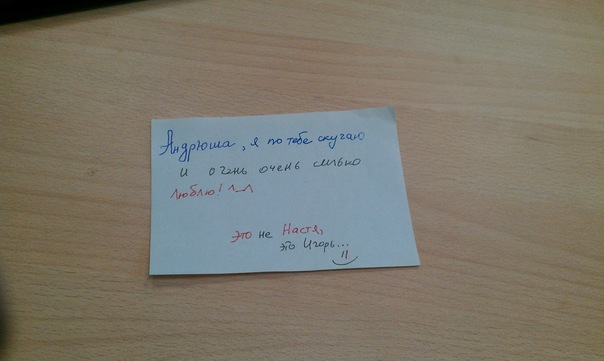 Андрюша, я по тебе скучаю
и очень очень сильно
люблю! ^_^
это не Настя,
это Игорь...